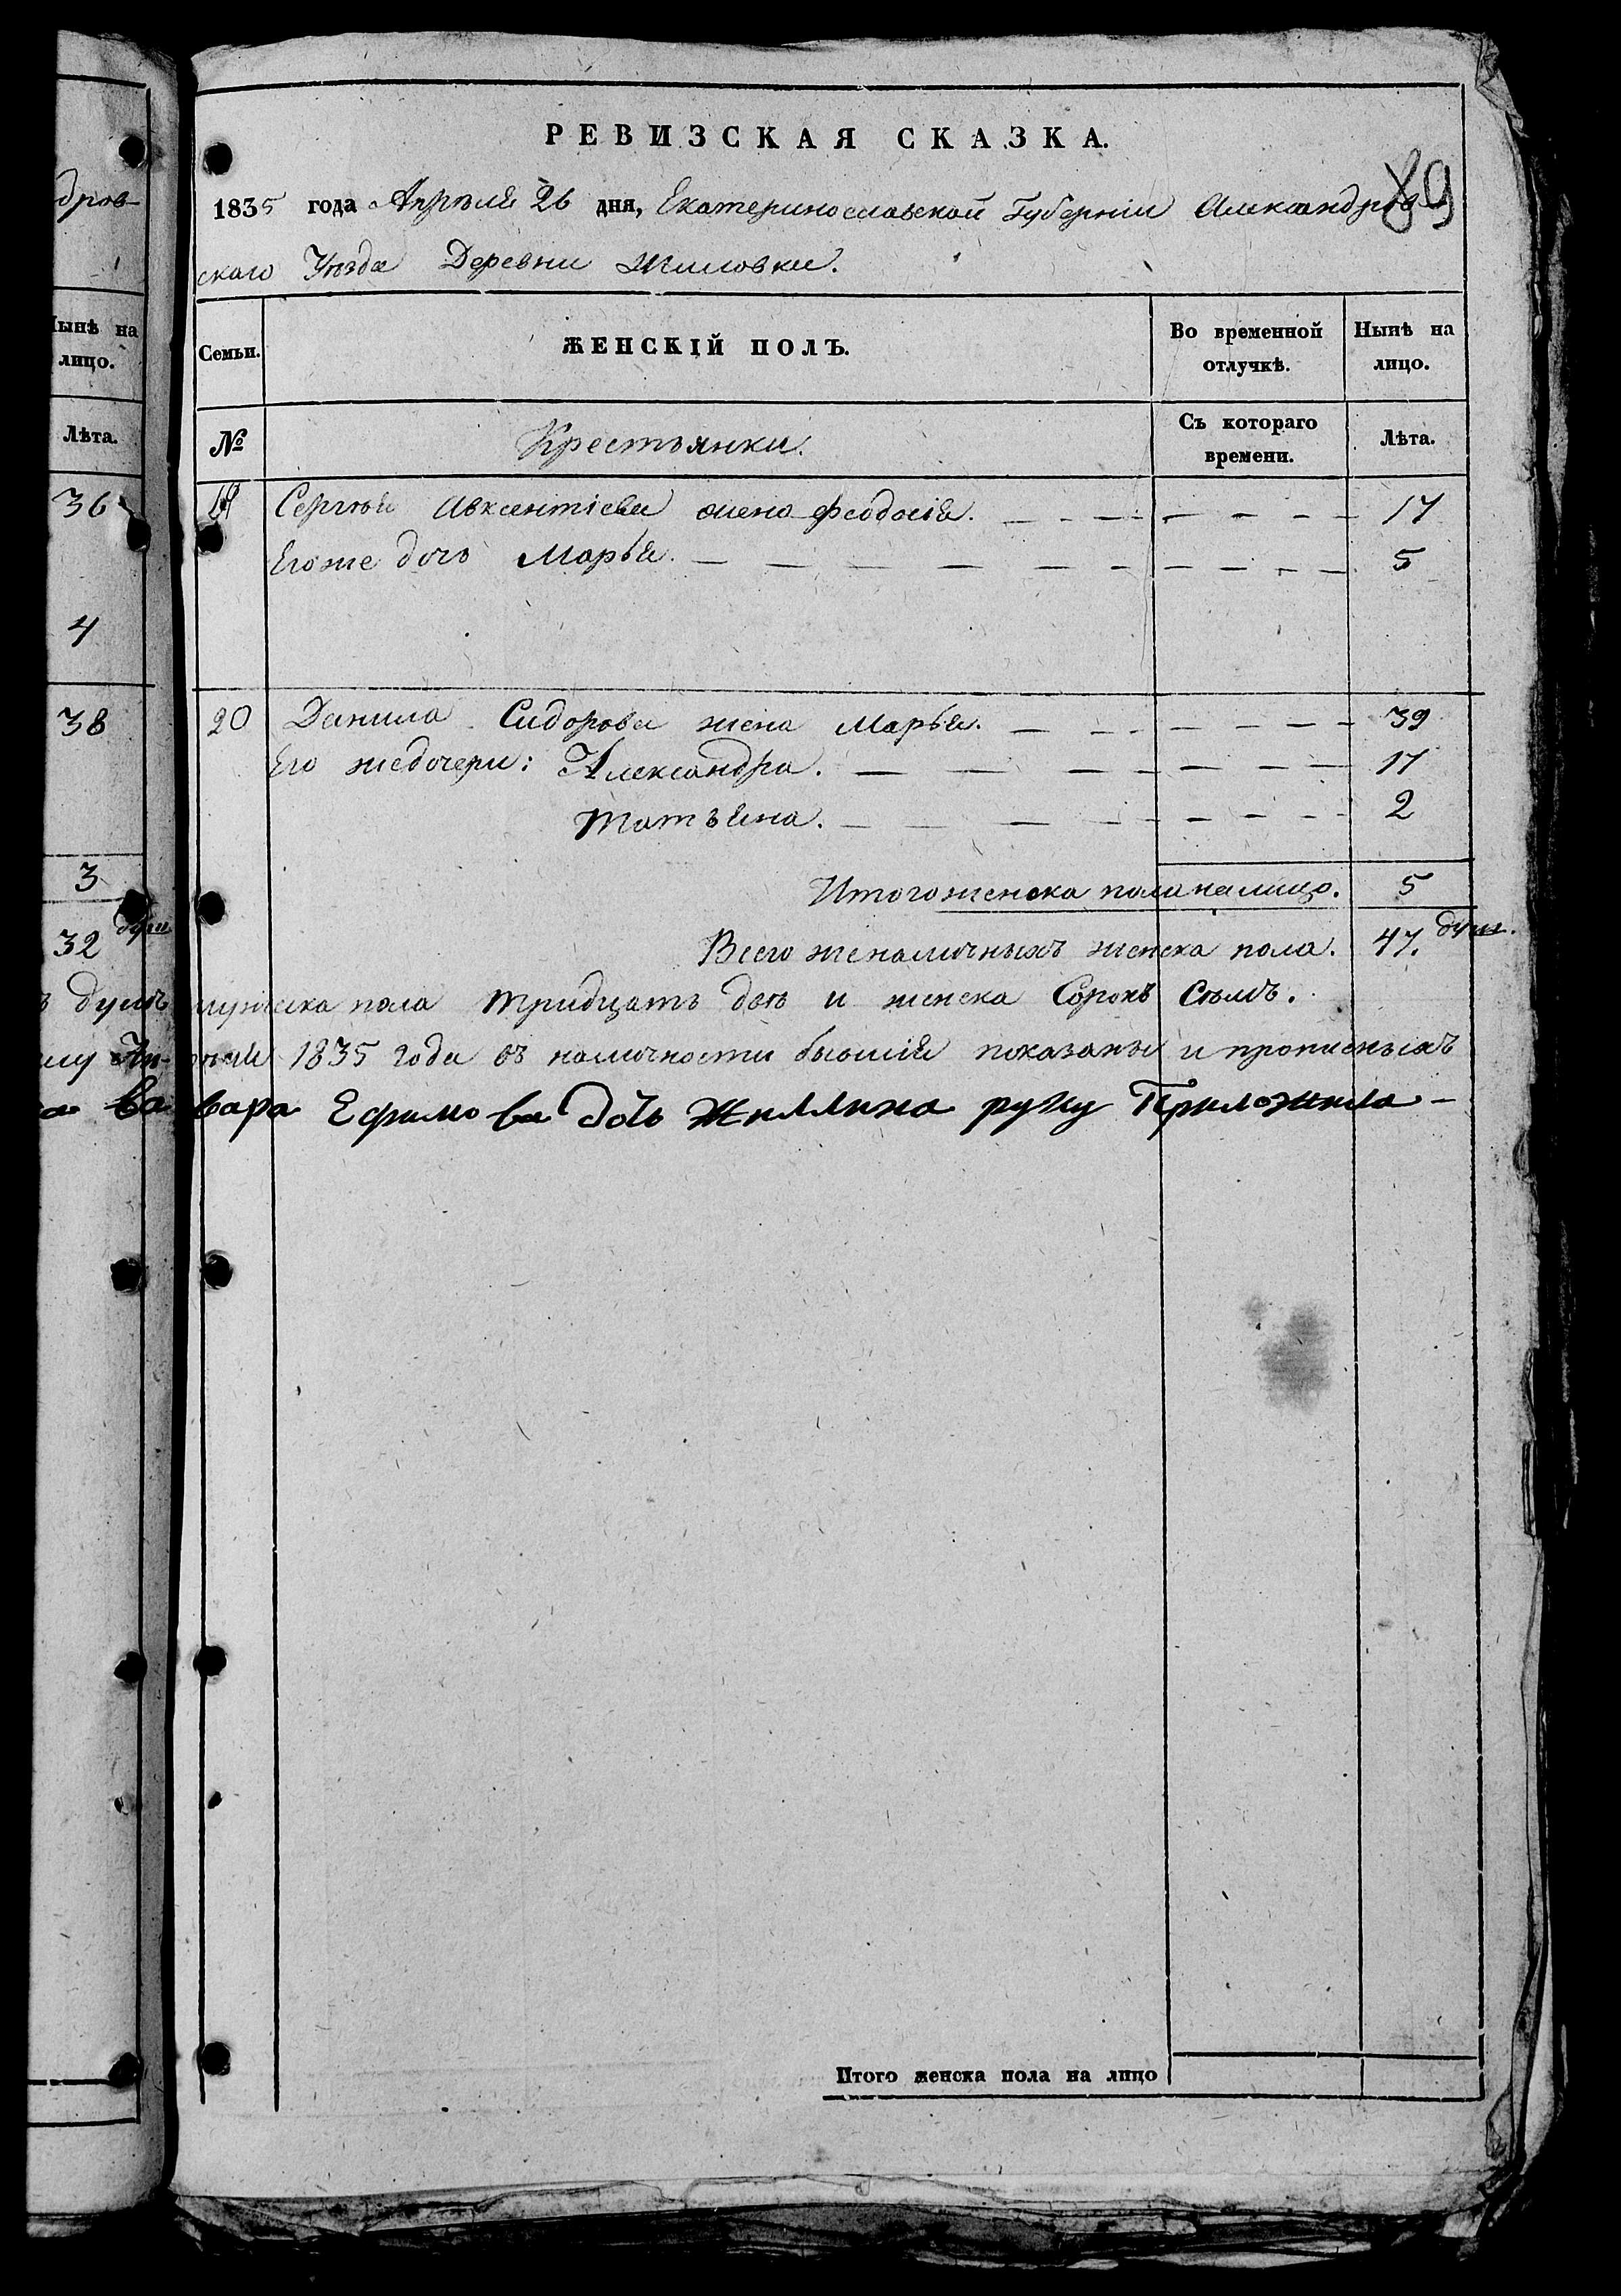 дров-
Нынѣ на
лицо.
Лѣта.
36
4
38
3
32 душ
РЕВИЗСКАЯ СКАЗКА.
89
1835 года Апрѣля 26 дня, Екатеринославской Губерніи Александров
скаго Уѣзда Деревни Жиловки.
Семьи. ЖЕНСКІЙ ПОЛЪ. Во временной отлучкѣ. Нынѣ на лицо.
№ Крестьянки. Съ котораго времени. Лѣта.
19 Сергѣя Авксентіева жена Феодосія. 17
Егоже дочь Марья. 5
20 Данила Сидорова жена Марья. 39
Его жедочери: Александра. 17
Татьяна. 2
Итого женска пола налицо. 5
Всего женаличныхъ женска пола. 47. душ.
ъ душъ мужеска пола тридцать двѣ и женска Сорокъ Сѣмь.
му Ап-рѣля 1835 года въ наличности бывшія показаны и прописныхъ
а Варвара Ефимова дочь Жиллина руку Приложила -
Итого женска пола на лицо